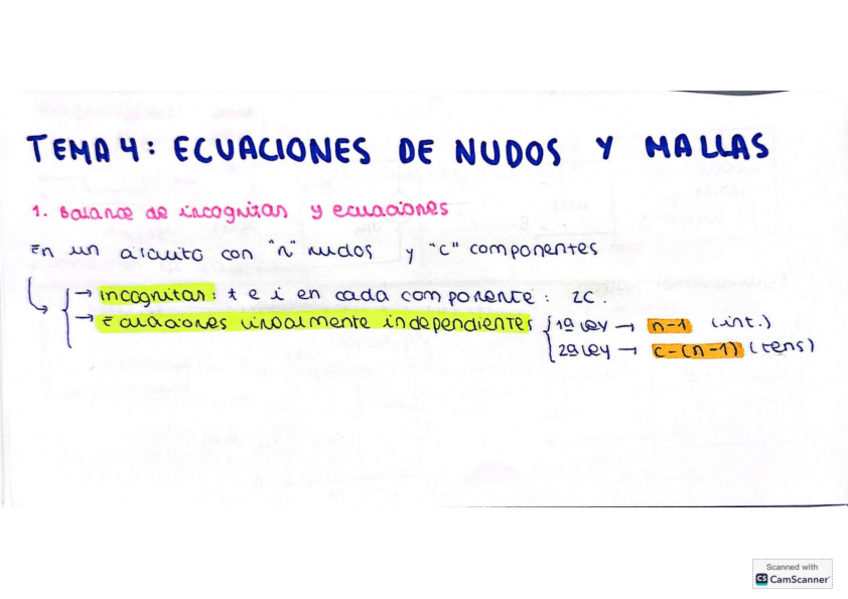 TEMA 4: ECUACIONES DE NUDOS Y MALLAS
1. Balance de incognitas y ecuaciones
En un circuito con "n" nudos y "c" componentes
→ incognitas: t e i en cada componente: 2C.
→ Ecuaciones linealmente independientes
1ª Ley → n-1 (int.)
2ª Ley → c-(n-1) (tens)
Scanned with
CS CamScanner